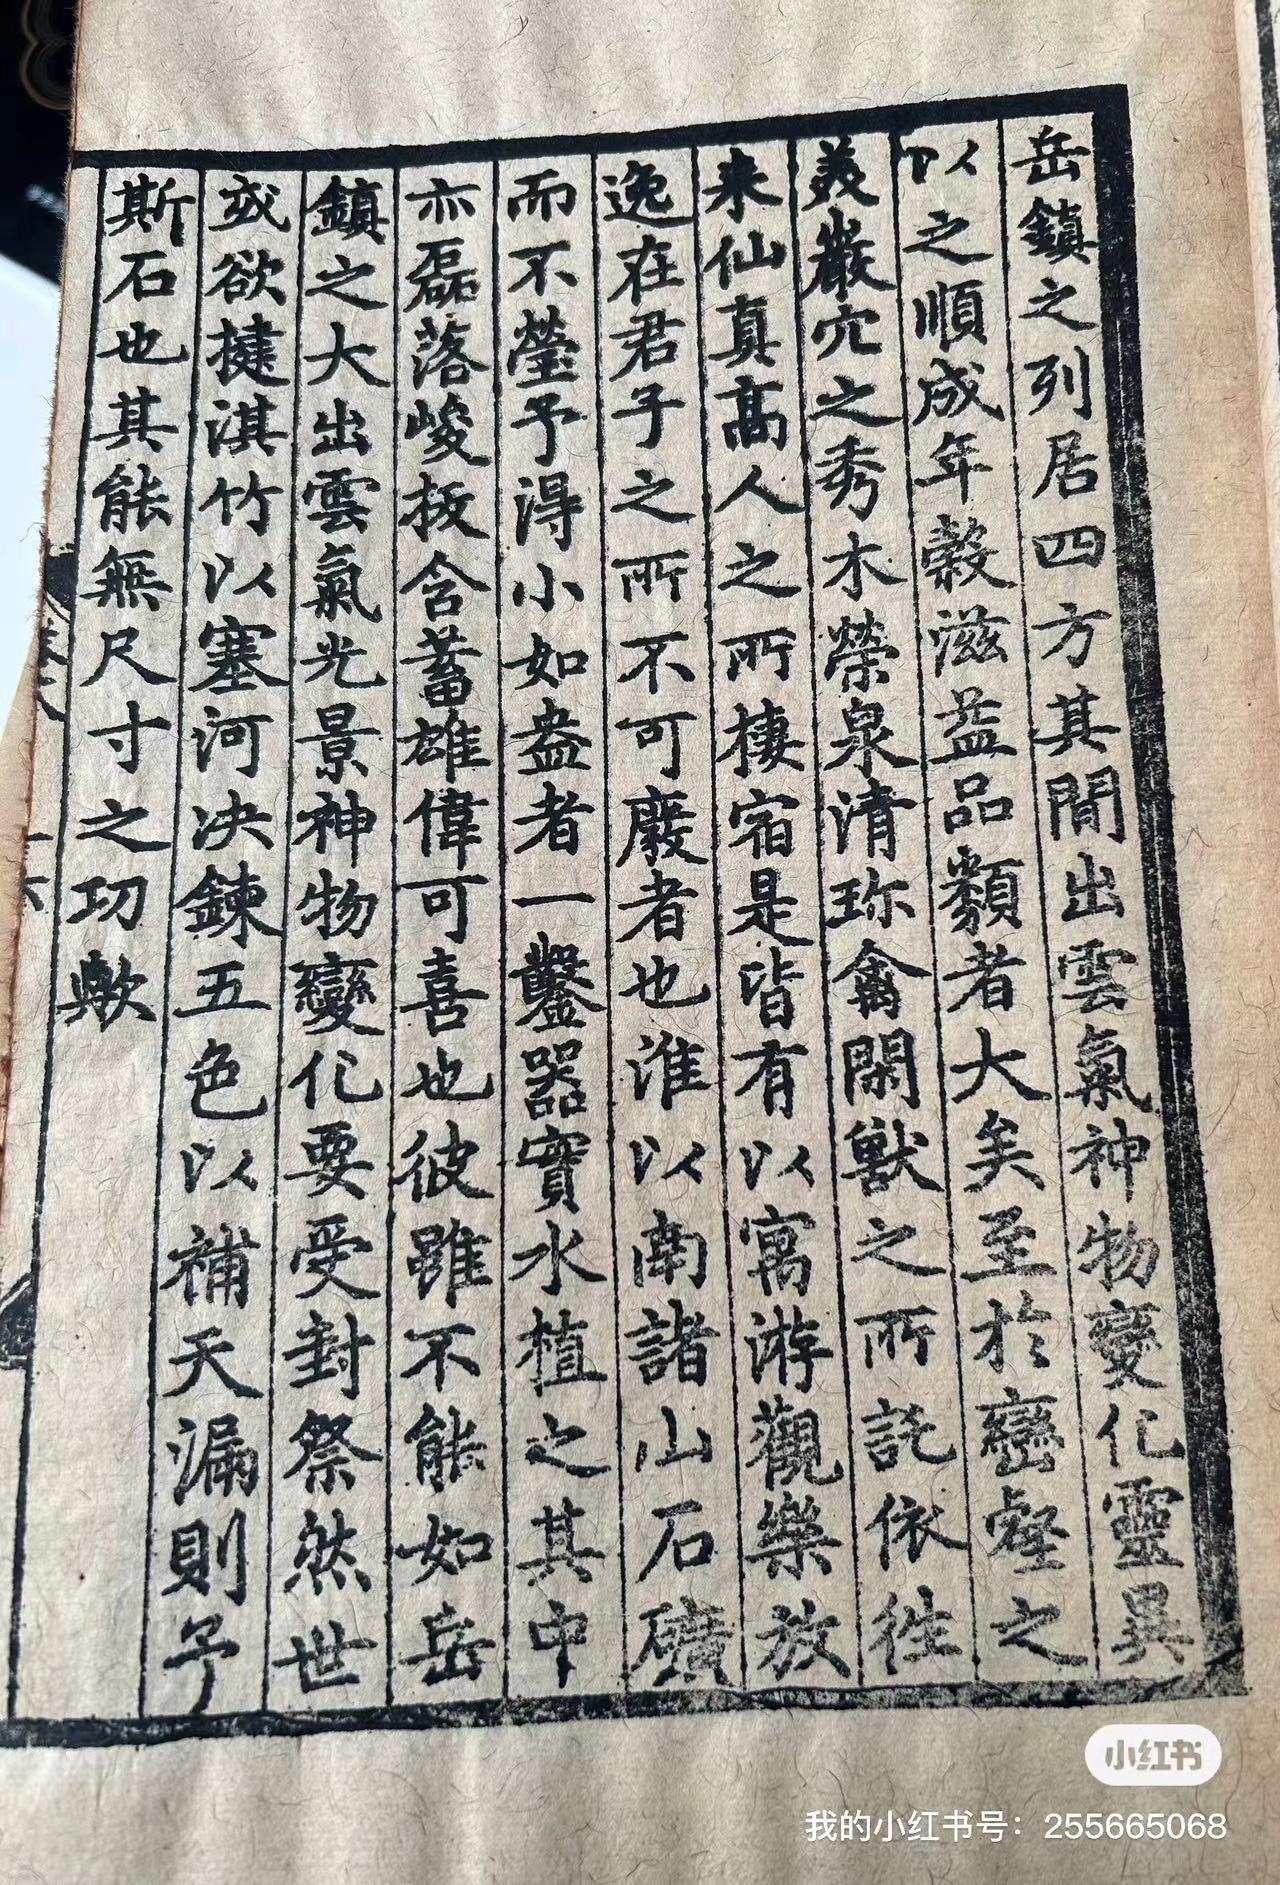 岳鎮之列居四方其間出雲氣神物變化靈異
以之順成年穀滋益品類者大矣至於巒壑之
美巖穴之秀木榮泉清珎禽閑獸之所託依徃
来仙真高人之所棲宿是皆有以寓游觀樂放
逸在君子之所不可廢者也淮以南諸山石礦
而不瑩予得小如盎者一鑿器實水植之其中
亦磊落峻拔含蓄雄偉可喜也彼雖不能如岳
鎮之大出雲氣光景神物變化要受封祭然世
或欲揵淇竹以塞河决鍊五色以補天漏則予
斯石也其能無尺寸之功歟
小红书
我的小红书号：255665068